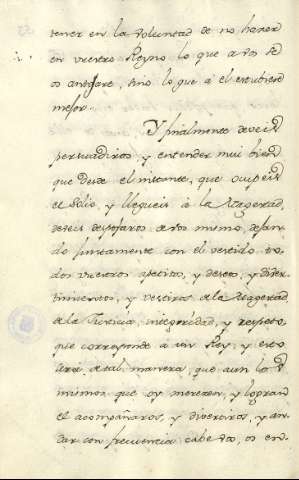 tener en la voluntad de no hazer
en vuestro Reyno lo que a vos se
os antojare, sino lo que á el estubiere
mejor.
Y finalmente deveis
persuadiros, y entender mui bien
que desde el instante, que ocupeis
el Solio, y llegueis á la Magestad,
deveis despojaros de vos mismo, dejan-
do juntamente con el vestido to-
dos vuestros apetitos, y deseos, y diver-
timientos, y vestiros de la Magestad,
de la Justicia, integridad, y respeto
que corresponde á un Rey; y esto
de tal manera, que aun los
mismos que oy merecen, y logran
el acompañaros, y divertiros, y an-
dar con frecuencia cabe vos, os en-